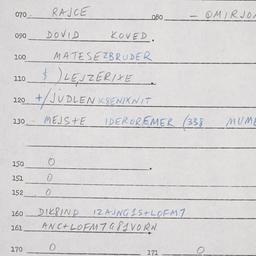 070 RAJCE 080 - OMIRJO
090 DOVID KOVED.
100 MATESEZBRUDER
110 $ ) LEJZERIXE
120 +/JUDLENKSENIKNIT
130 - MEJSTE IDEROREMER (338 MUME
150 0
151 0
152 0
160 DIK8IND IZAJNGIS+LOFM7
161 ANC+LOFM7G81VORN
170 0 171 0